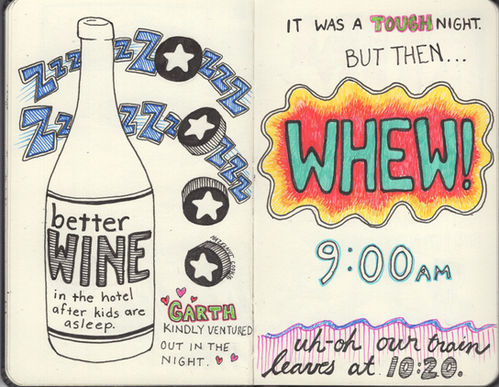 ZZZZZZZZZ
ZZZZZZZZZZ
better
WINE
in the hotel
after kids are
asleep.
GARTH
KINDLY VENTURED
OUT IN THE
NIGHT.
IT WAS A TOUGH NIGHT.
BUT THEN...
WHEW!
9:00 AM
uh-oh our train
leaves at 10:20.